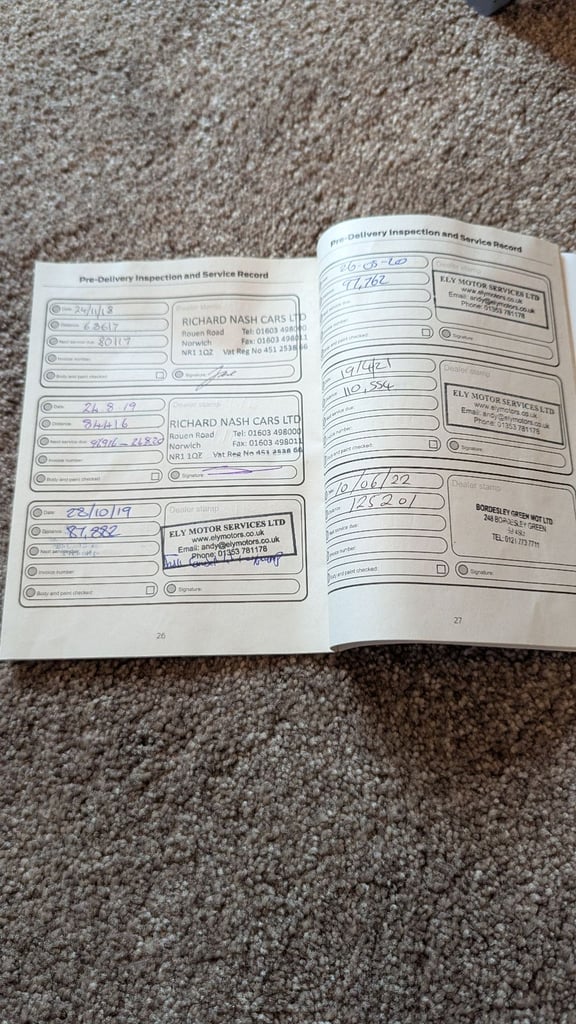 Pre-Delivery Inspection and Service Record
Date: 24/11/18
Distance: 68617
Next service due: 80117
Invoice number:
Body and paint checked:
RICHARD NASH CARS LTD
Rouen Road Tel: 01603 498000
Norwich Fax: 01603 498011
NR1 1QZ Vat Reg No 451 2538 66
Signature:
Date: 24.8.19
Distance: 84416
Next service due:
Invoice number:
Body and paint checked:
Dealer stamp
RICHARD NASH CARS LTD
Rouen Road Tel: 01603 498000
Norwich Fax: 01603 498011
NR1 1QZ Vat Reg No 451 2538 66
Signature:
Date: 28/10/19
Distance: 87,882
Next service
Invoice number:
Body and paint checked:
Dealer stamp
ELY MOTOR SERVICES LTD
www.elymotors.co.uk
Email: andy@elymotors.co.uk
Phone: 01353 781178
Signature:
26
Pre-Delivery Inspection and Service Record
97,762
service due:
number:
paint checked:
Dealer stamp
ELY MOTOR SERVICES LTD
www.elymotors.co.uk
Email: andy@elymotors.co.uk
Phone: 01353 781178
Signature:
19/4/21
110,554
service due:
number:
paint checked:
Dealer stamp
ELY MOTOR SERVICES LTD
www.elymotors.co.uk
Email: andy@elymotors.co.uk
Phone: 01353 781178
Signature:
10/06/22
125201
service due:
number:
Body and paint checked:
Dealer stamp
BORDESLEY GREEN MOT LTD
248 BORDESLEY GREEN
TEL: 0121 773 7711
Signature:
27